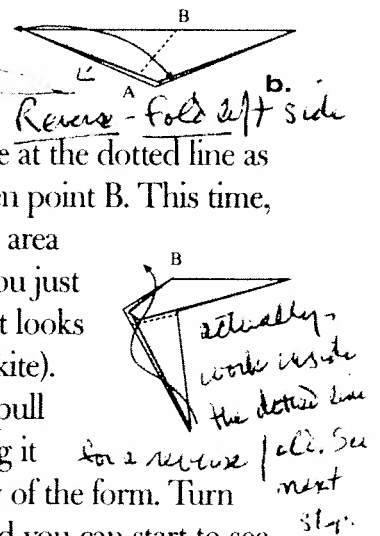 B
A
b.
Reverse - Fold left side
e at the dotted line as
en point B. This time,
area
ou just
B
t looks
kite).
pull
g it
of the form. Turn
d you can start to see
actually,
work inside
the dotted line
for a reverse fold. See
next
step.